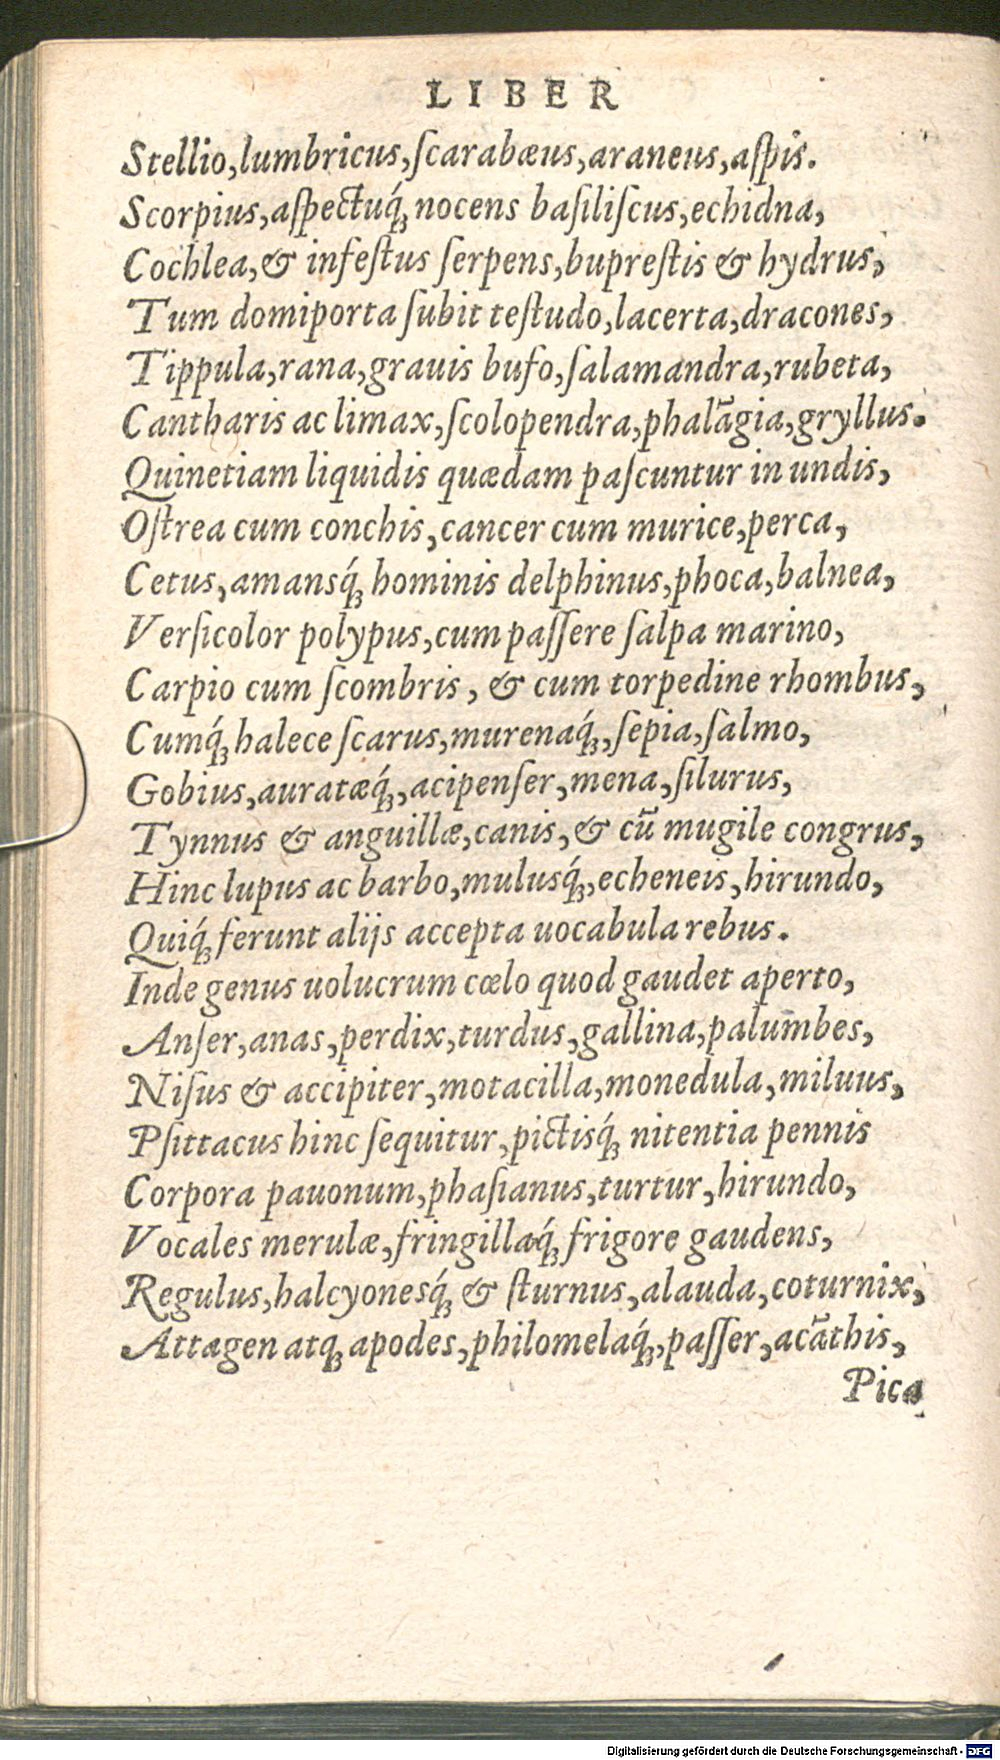 LIBER
Stellio,lumbricus,ſcarabæus,araneus,aſpis.
Scorpius,aſpectuq́ꝫ nocens baſiliſcus,echidna,
Cochlea,& infeſtus ſerpens,bupreſtis & hydrus,
Tum domiporta ſubit teſtudo,lacerta,dracones,
Tippula,rana,grauis bufo,ſalamandra,rubeta,
Cantharis ac limax,ſcolopendra,phalãgia,gryllus.
Quinetiam liquidis quædam paſcuntur in undis,
Oſtrea cum conchis,cancer cum murice,perca,
Cetus,amansq́ꝫ hominis delphinus,phoca,balnea,
Verſicolor polypus,cum paſſere ſalpa marino,
Carpio cum ſcombris, & cum torpedine rhombus,
Cumq́ꝫ halece ſcarus,murenaq́ꝫ,ſepia,ſalmo,
Gobius,auratæq́ꝫ,acipenſer,mena,ſilurus,
Tynnus & anguillæ,canis,& cũ mugile congrus,
Hinc lupus ac barbo,mulusq́ꝫ,echeneis,hirundo,
Quiq́ꝫ ferunt alijs accepta uocabula rebus.
Inde genus uolucrum cœlo quod gaudet aperto,
Anſer,anas,perdix,turdus,gallina,palumbes,
Niſus & accipiter,motacilla,monedula,miluus,
Pſittacus hinc ſequitur,pictisq́ꝫ nitentia pennis
Corpora pauonum,phaſianus,turtur,hirundo,
Vocales merulæ,fringillaq́ꝫ frigore gaudens,
Regulus,halcyonesq́ꝫ & ſturnus,alauda,coturnix,
Attagen atqꝫ apodes,philomelaq́ꝫ,paſſer,acãthis,
Pica
Digitalisierung gefördert durch die Deutsche Forschungsgemeinschaft - DFG